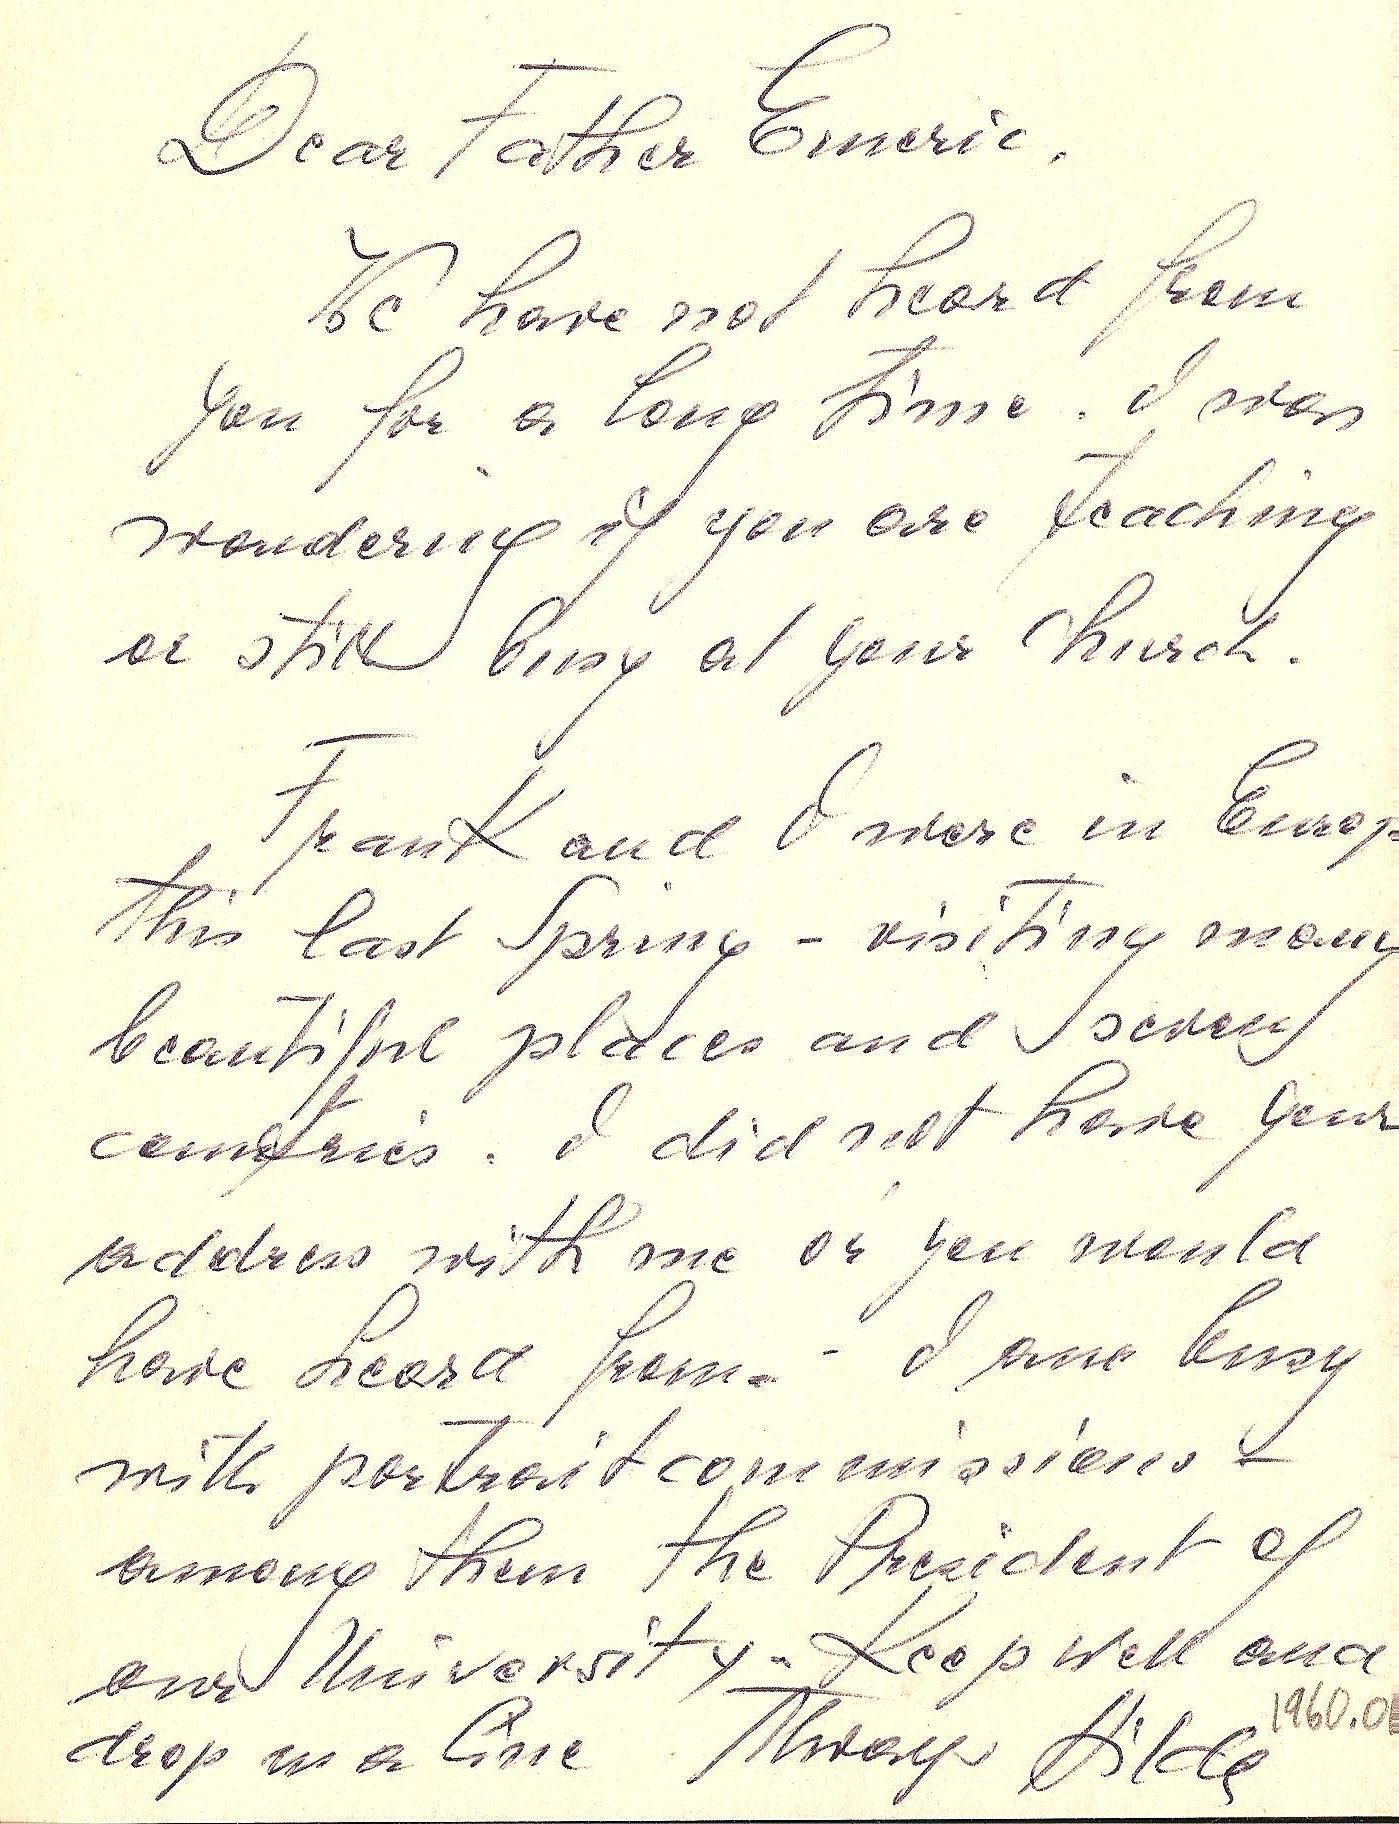 Dear Father Emeric.
We have not heard from
you for a long time. I was
wondering if you are teaching
or still busy at your church.
Frank and I were in Europ
this last Spring - visiting many
beautiful places and seven
countries. I did not have your
address with me or you would
have heard from. - I am busy
with portrait commissions -
among them the President of
our University. Keep well and
drop us a line Always Hilde
1960.0